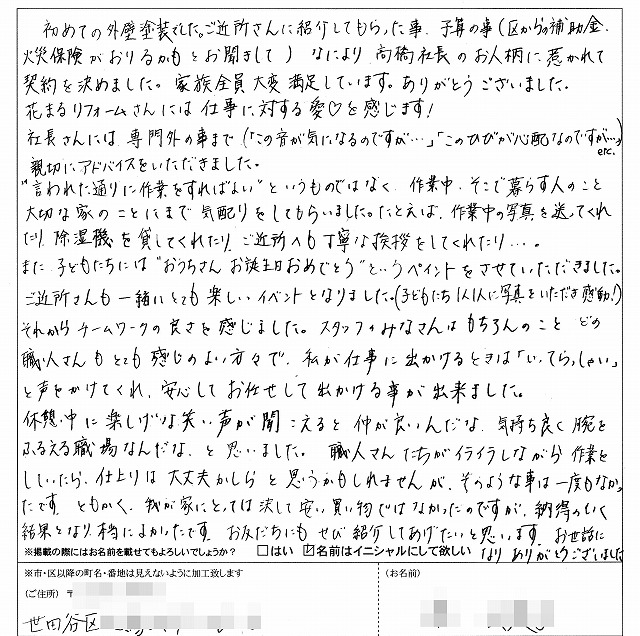 初めての外壁塗装でした。ご近所さんに紹介してもらった事、予算の事（区からの補助金、
火災保険がおりるかもとお聞きして）なにより高橋社長のお人柄に惹かれて
契約を決めました。家族全員大変満足しています。ありがとうございました。
花まるリフォームさんには仕事に対する愛♡を感じます！
社長さんには、専門外の事まで（「この音が気になるのですが…」「このひびが心配なのですが…」etc.）
親切にアドバイスをいただきました。
"言われた通りに作業をすればよい"というものではなく、作業中、そこで暮らす人のこと
大切な家のことにまで気配りをしてもらいました。たとえば、作業中の写真を送ってくれ
たり、除湿機を貸してくれたり、ご近所へも丁寧な挨拶をしてくれたり…。
また子どもたちには"おうちさんお誕生日おめでとう"というペイントをさせていただきました。
ご近所さんも一緒にとても楽しいイベントとなりました。（子どもたち1人1人に写真をいただき感動！）
それからチームワークの良さを感じました。スタッフのみなさんはもちろんのこと どの
職人さんもとても感じのよい方々で、私が仕事に出かけるときは「いってらっしゃい」
と声をかけてくれ、安心してお任せして出かける事が出来ました。
休憩中に楽しげな笑い声が聞こえると仲が良いんだな、気持ち良く腕を
ふるえる職場なんだな、と思いました。職人さんたちがイライラしながら作業を
していたら、仕上りは大丈夫かしらと思うかもしれませんが、そのような事は一度もなかっ
たです。ともかく、我が家にとっては決して安い買い物ではなかったのですが、納得のいく
結果となり、本当によかったです。お友だちにもぜひ紹介してあげたいと思います。お世話に
なりありがとうございました
※掲載の際にはお名前を載せてもよろしいでしょうか？ □はい ☑名前はイニシャルにして欲しい
※市・区以降の町名・番地は見えないように加工致します
（ご住所）〒
（お名前）
世田谷区